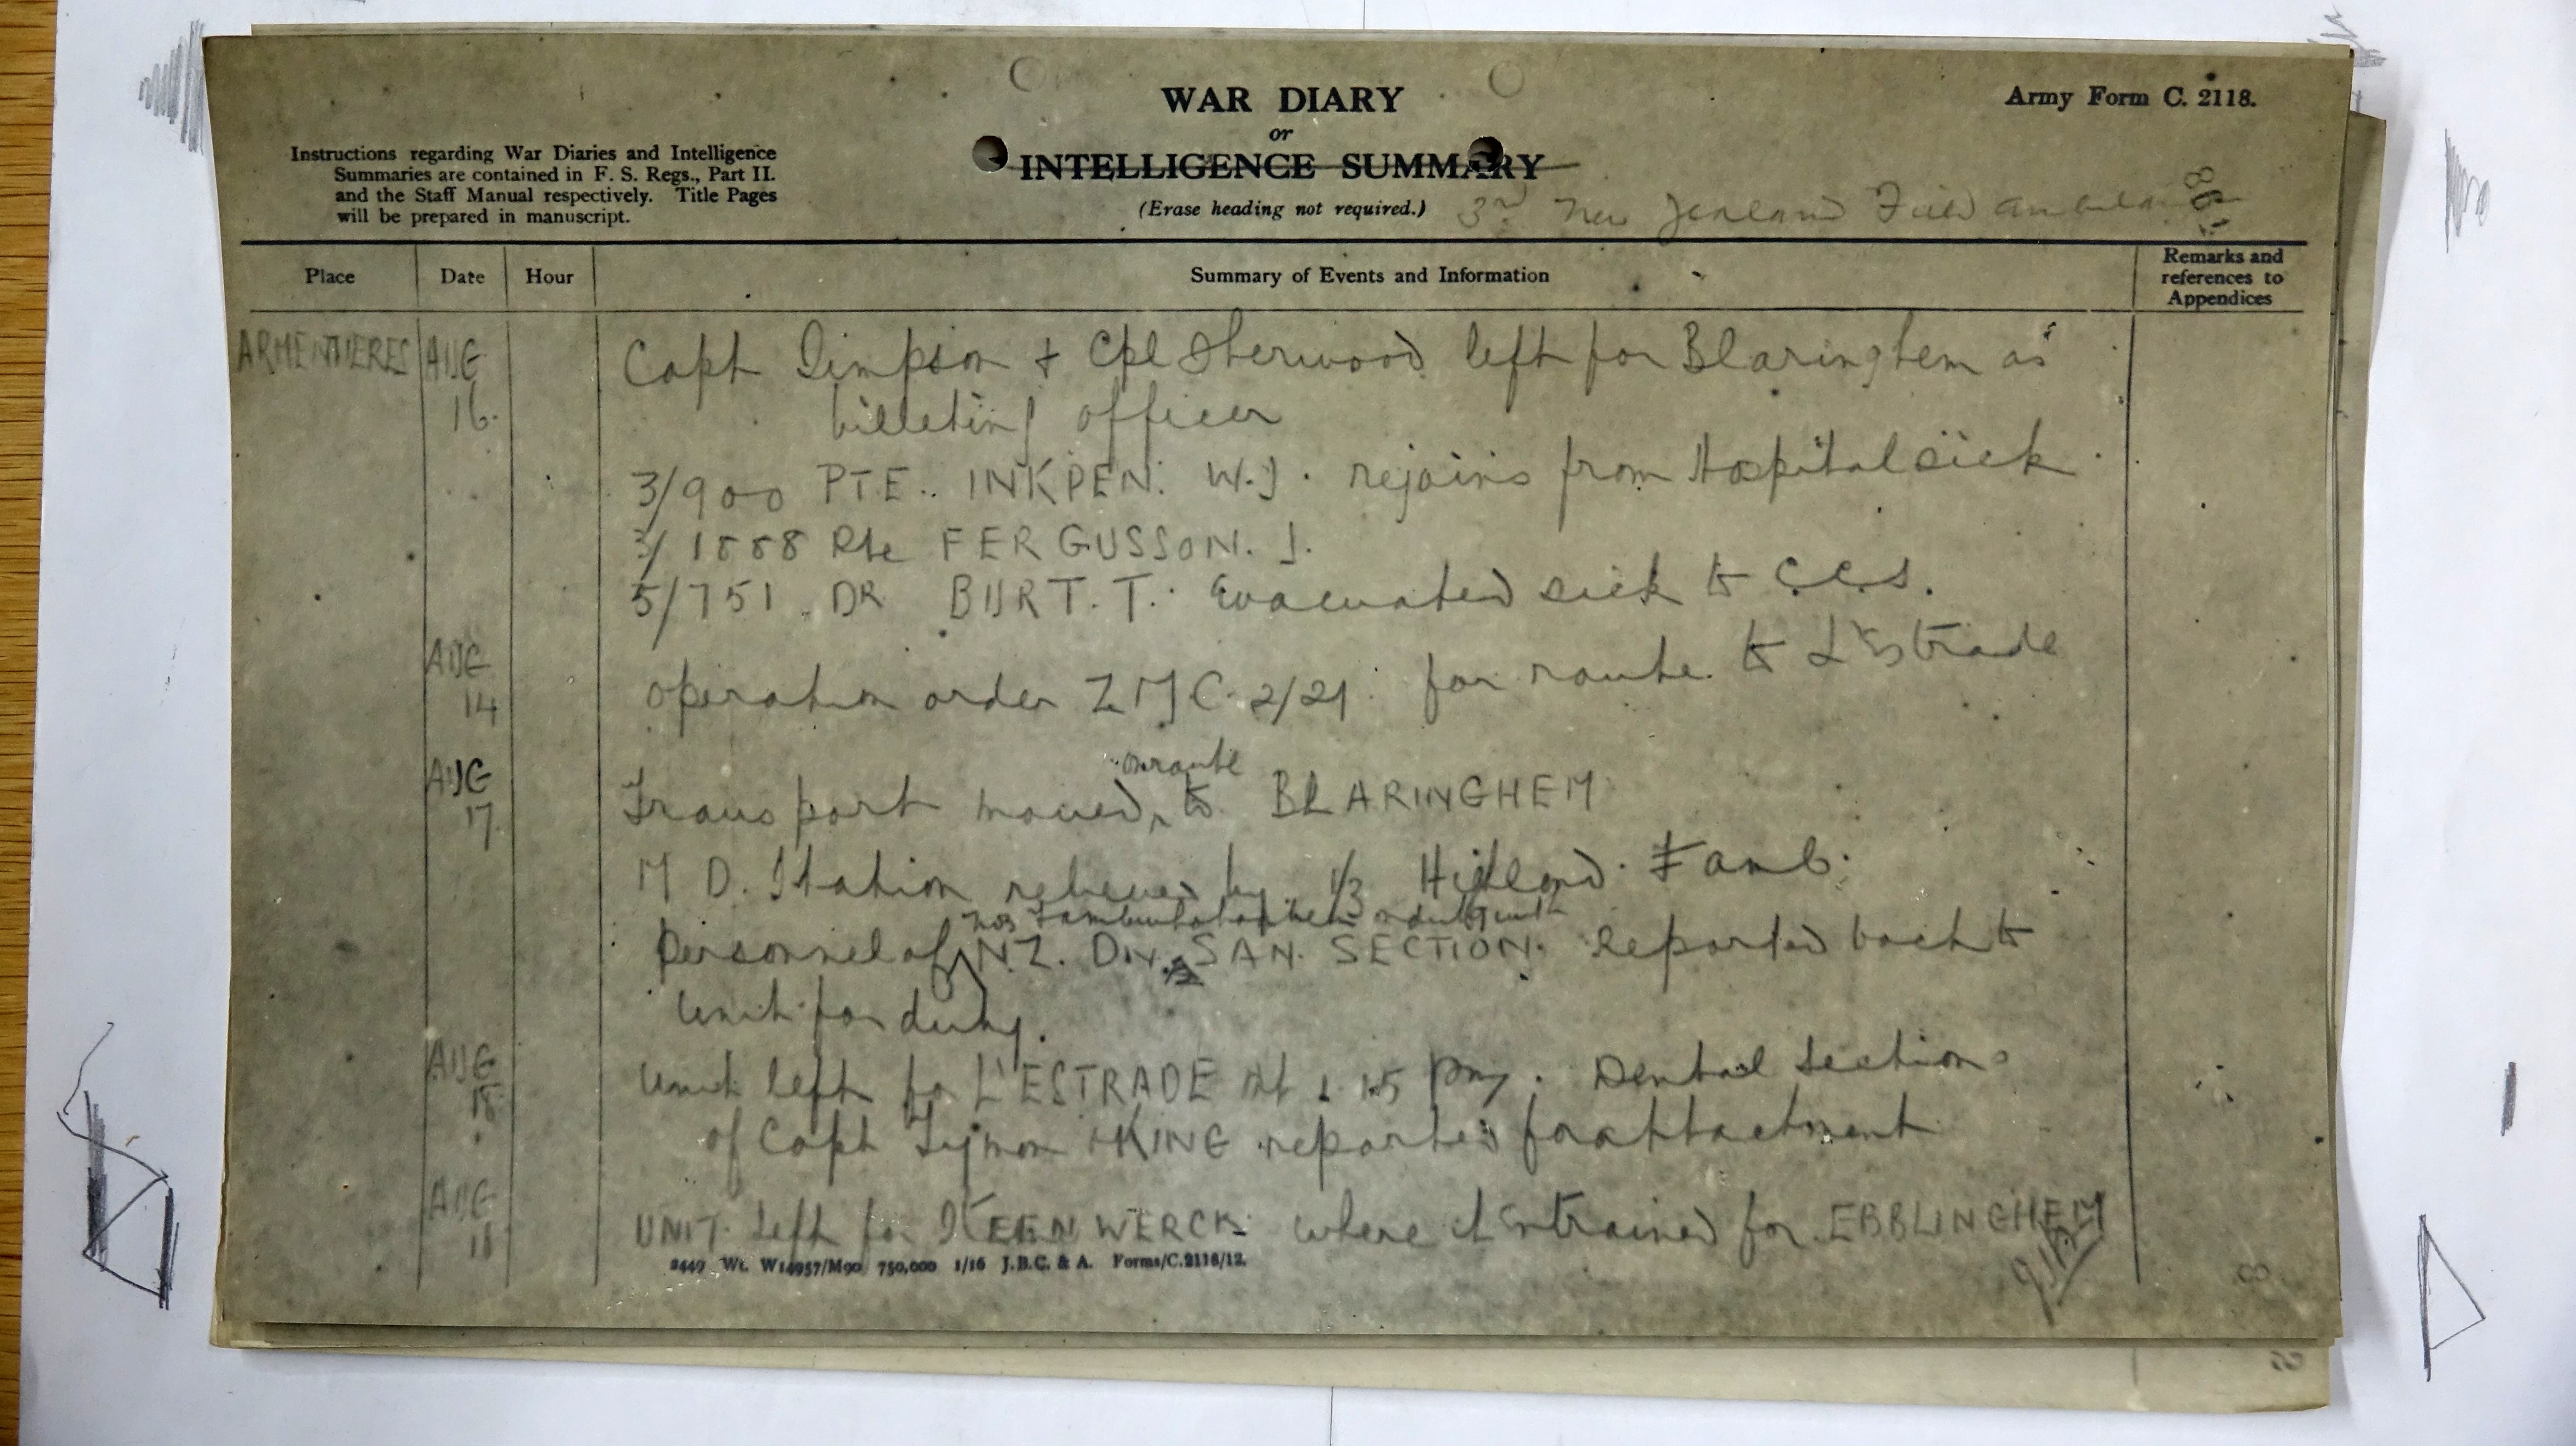 WAR DIARY
or
INTELLIGENCE SUMMARY
(Erase heading not required.)
Army Form C. 2118.
Instructions regarding War Diaries and Intelligence
Summaries are contained in F. S. Regs., Part II.
and the Staff Manual respectively. Title Pages
will be prepared in manuscript.
3rd New Zealand Field Ambulance
Place Date Hour Summary of Events and Information Remarks and references to Appendices
ARMENTIERES AUG 16. Capt Simpson + Cpl Sherwood left for Blaringhem as
billeting officer
3/900 PTE. INKPEN. W.J. rejoins from Hospital sick
3/1888 Pte FERGUSSON. J.
5/751 DR BURT. T. Evacuated sick to C.C.S.
AUG 14 operation order 2/21 for route to L'Estrade
AUG 17 Transport moved onroute to BLARINGHEM
M D. Station relieved by 1/3 Highland F amb.
Personnel of N.Z. DIV. SAN. SECTION. Reported back to
unit for duty.
AUG 18 Unit left for L'ESTRADE at 1.15 pm. Dental Sections
of Capt + KING reported for attachment
AUG UNIT left for STEENWERCK where it entrained for EBBLINGHEM
2449 Wt. W14957/M90 750,000 1/16 J.B.C. & A. Forms/C.2118/12.